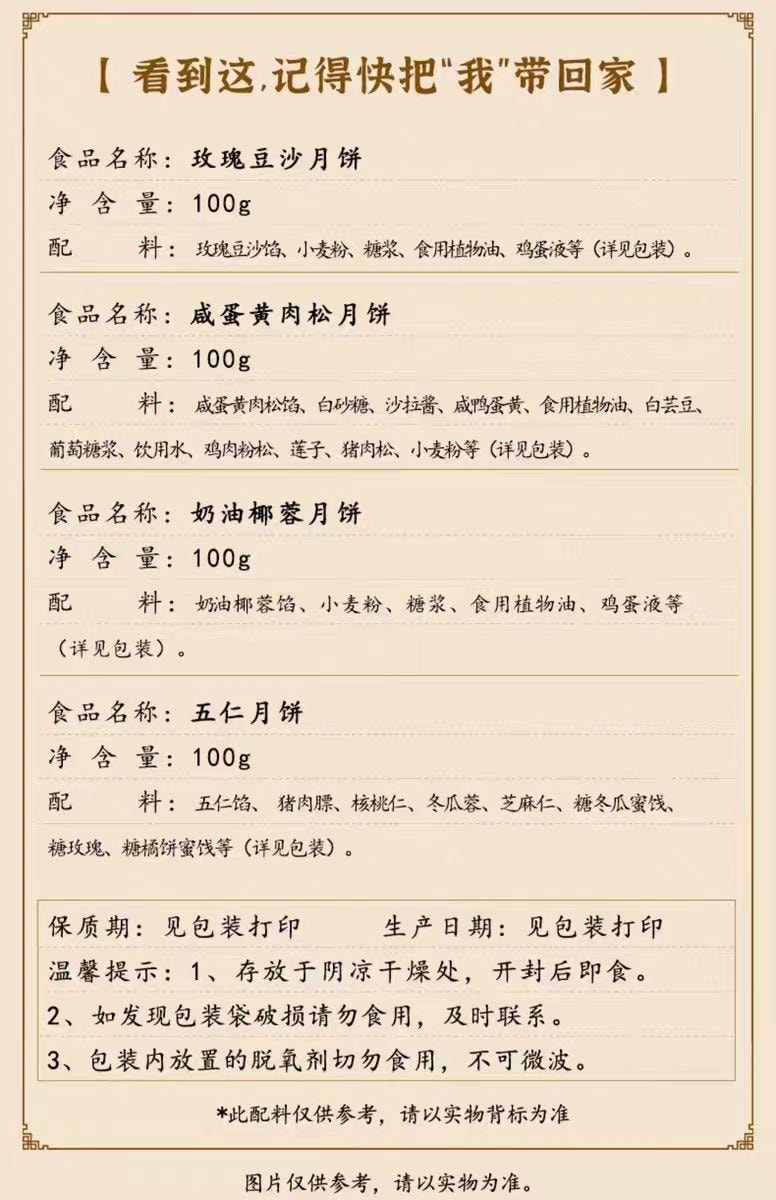 【 看到这,记得快把“我”带回家 】
食品名称：玫瑰豆沙月饼
净含量：100g
配料：玫瑰豆沙馅、小麦粉、糖浆、食用植物油、鸡蛋液等（详见包装）。
食品名称：咸蛋黄肉松月饼
净含量：100g
配料：咸蛋黄肉松馅、白砂糖、沙拉酱、咸鸭蛋黄、食用植物油、白芸豆、
葡萄糖浆、饮用水、鸡肉粉松、莲子、猪肉松、小麦粉等（详见包装）。
食品名称：奶油椰蓉月饼
净含量：100g
配料：奶油椰蓉馅、小麦粉、糖浆、食用植物油、鸡蛋液等
（详见包装）。
食品名称：五仁月饼
净含量：100g
配料：五仁馅、猪肉膘、核桃仁、冬瓜蓉、芝麻仁、糖冬瓜蜜饯、
糖玫瑰、糖橘饼蜜饯等（详见包装）。
保质期：见包装打印 生产日期：见包装打印
温馨提示：1、存放于阴凉干燥处，开封后即食。
2、如发现包装袋破损请勿食用，及时联系。
3、包装内放置的脱氧剂切勿食用，不可微波。
*此配料仅供参考，请以实物背标为准
图片仅供参考，请以实物为准。